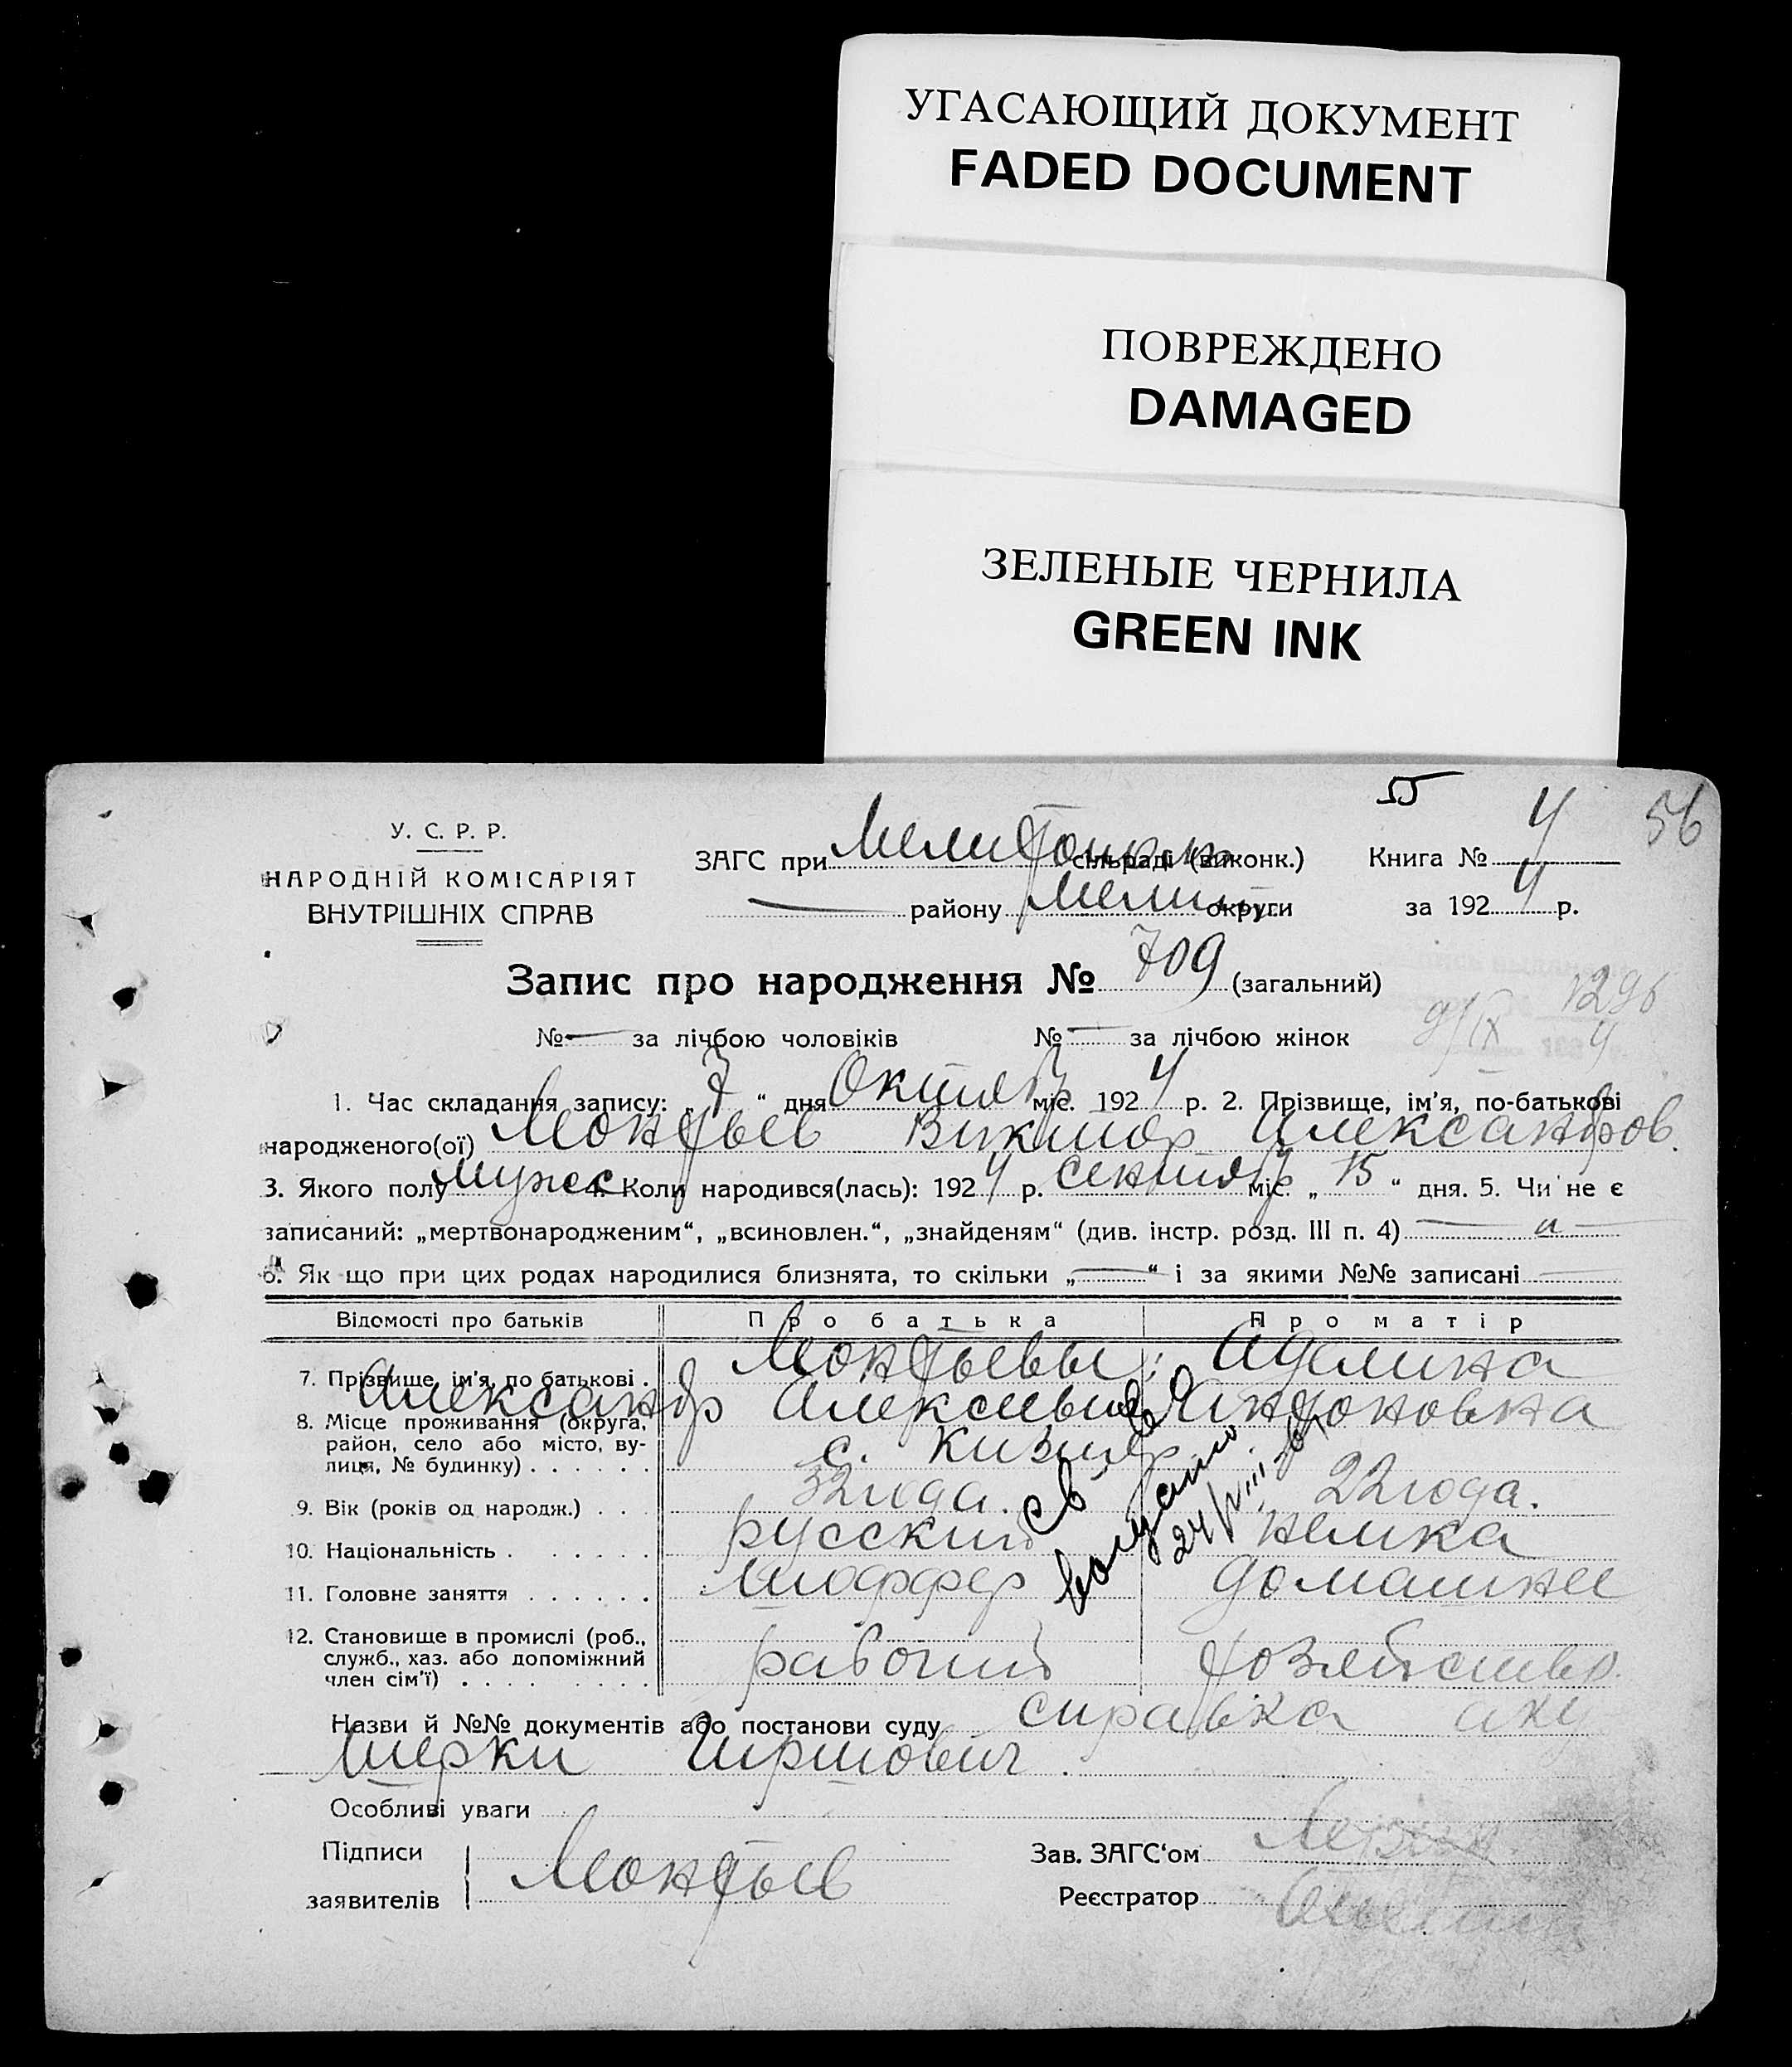 УГАСАЮЩИЙ ДОКУМЕНТ
FADED DOCUMENT
ПОВРЕЖДЕНО
DAMAGED
ЗЕЛЕНЫЕ ЧЕРНИЛА
GREEN INK
55 56
У. С. Р. Р.
НАРОДНІЙ КОМІСАРІЯТ
ВНУТРІШНІХ СПРАВ
ЗАГС при сільраді (виконк.) Книга № 4
району Мелит. округи за 1924 р.
Запис про народження № 709 (загальний)
1296
№ — за лічбою чоловіків № — за лічбою жінок 9/IX 4
1. Час складання запису: „7“ дня Октяб міс. 1924 р. 2. Прізвище, ім'я, по-батькові
народженого(ої) Леонтьев Виктор Александров.
3. Якого полу мужс 4. Коли народився(лась): 1924 р. сентяб міс. „15“ дня. 5. Чи не є
записаний: „мертвонародженим“, „всиновлен.“, „знайденям“ (див. інстр. розд. III п. 4) —
6. Як що при цих родах народилися близнята, то скільки „—“ і за якими №№ записані —
Відомості про батьків Про батька Про матір
7. Прізвище, ім'я, по батькові . Леонтьевы: Аделина
Александр Алексеевич Антоновна
8. Місце проживання (округа,
район, село або місто, ву-
лиця, № будинку) . . . . . . с. Кизияр
9. Вік (років од народж.) . . . 32 года. 22 года.
10. Національність . . . . . . русский немка
11. Головне заняття . . . . . . шоффер домашнее
12. Становище в промислі (роб.,
служб., хаз. або допоміжний
член сім'ї) . . . . . . . . рабочий хозяйство.
св-во
24/VIII
Назви й №№ документів або постанови суду справка аку
шерки Гиршович.
Особливі уваги
Підписи
заявителів Леонтьев
Зав. ЗАГС'ом
Реєстратор